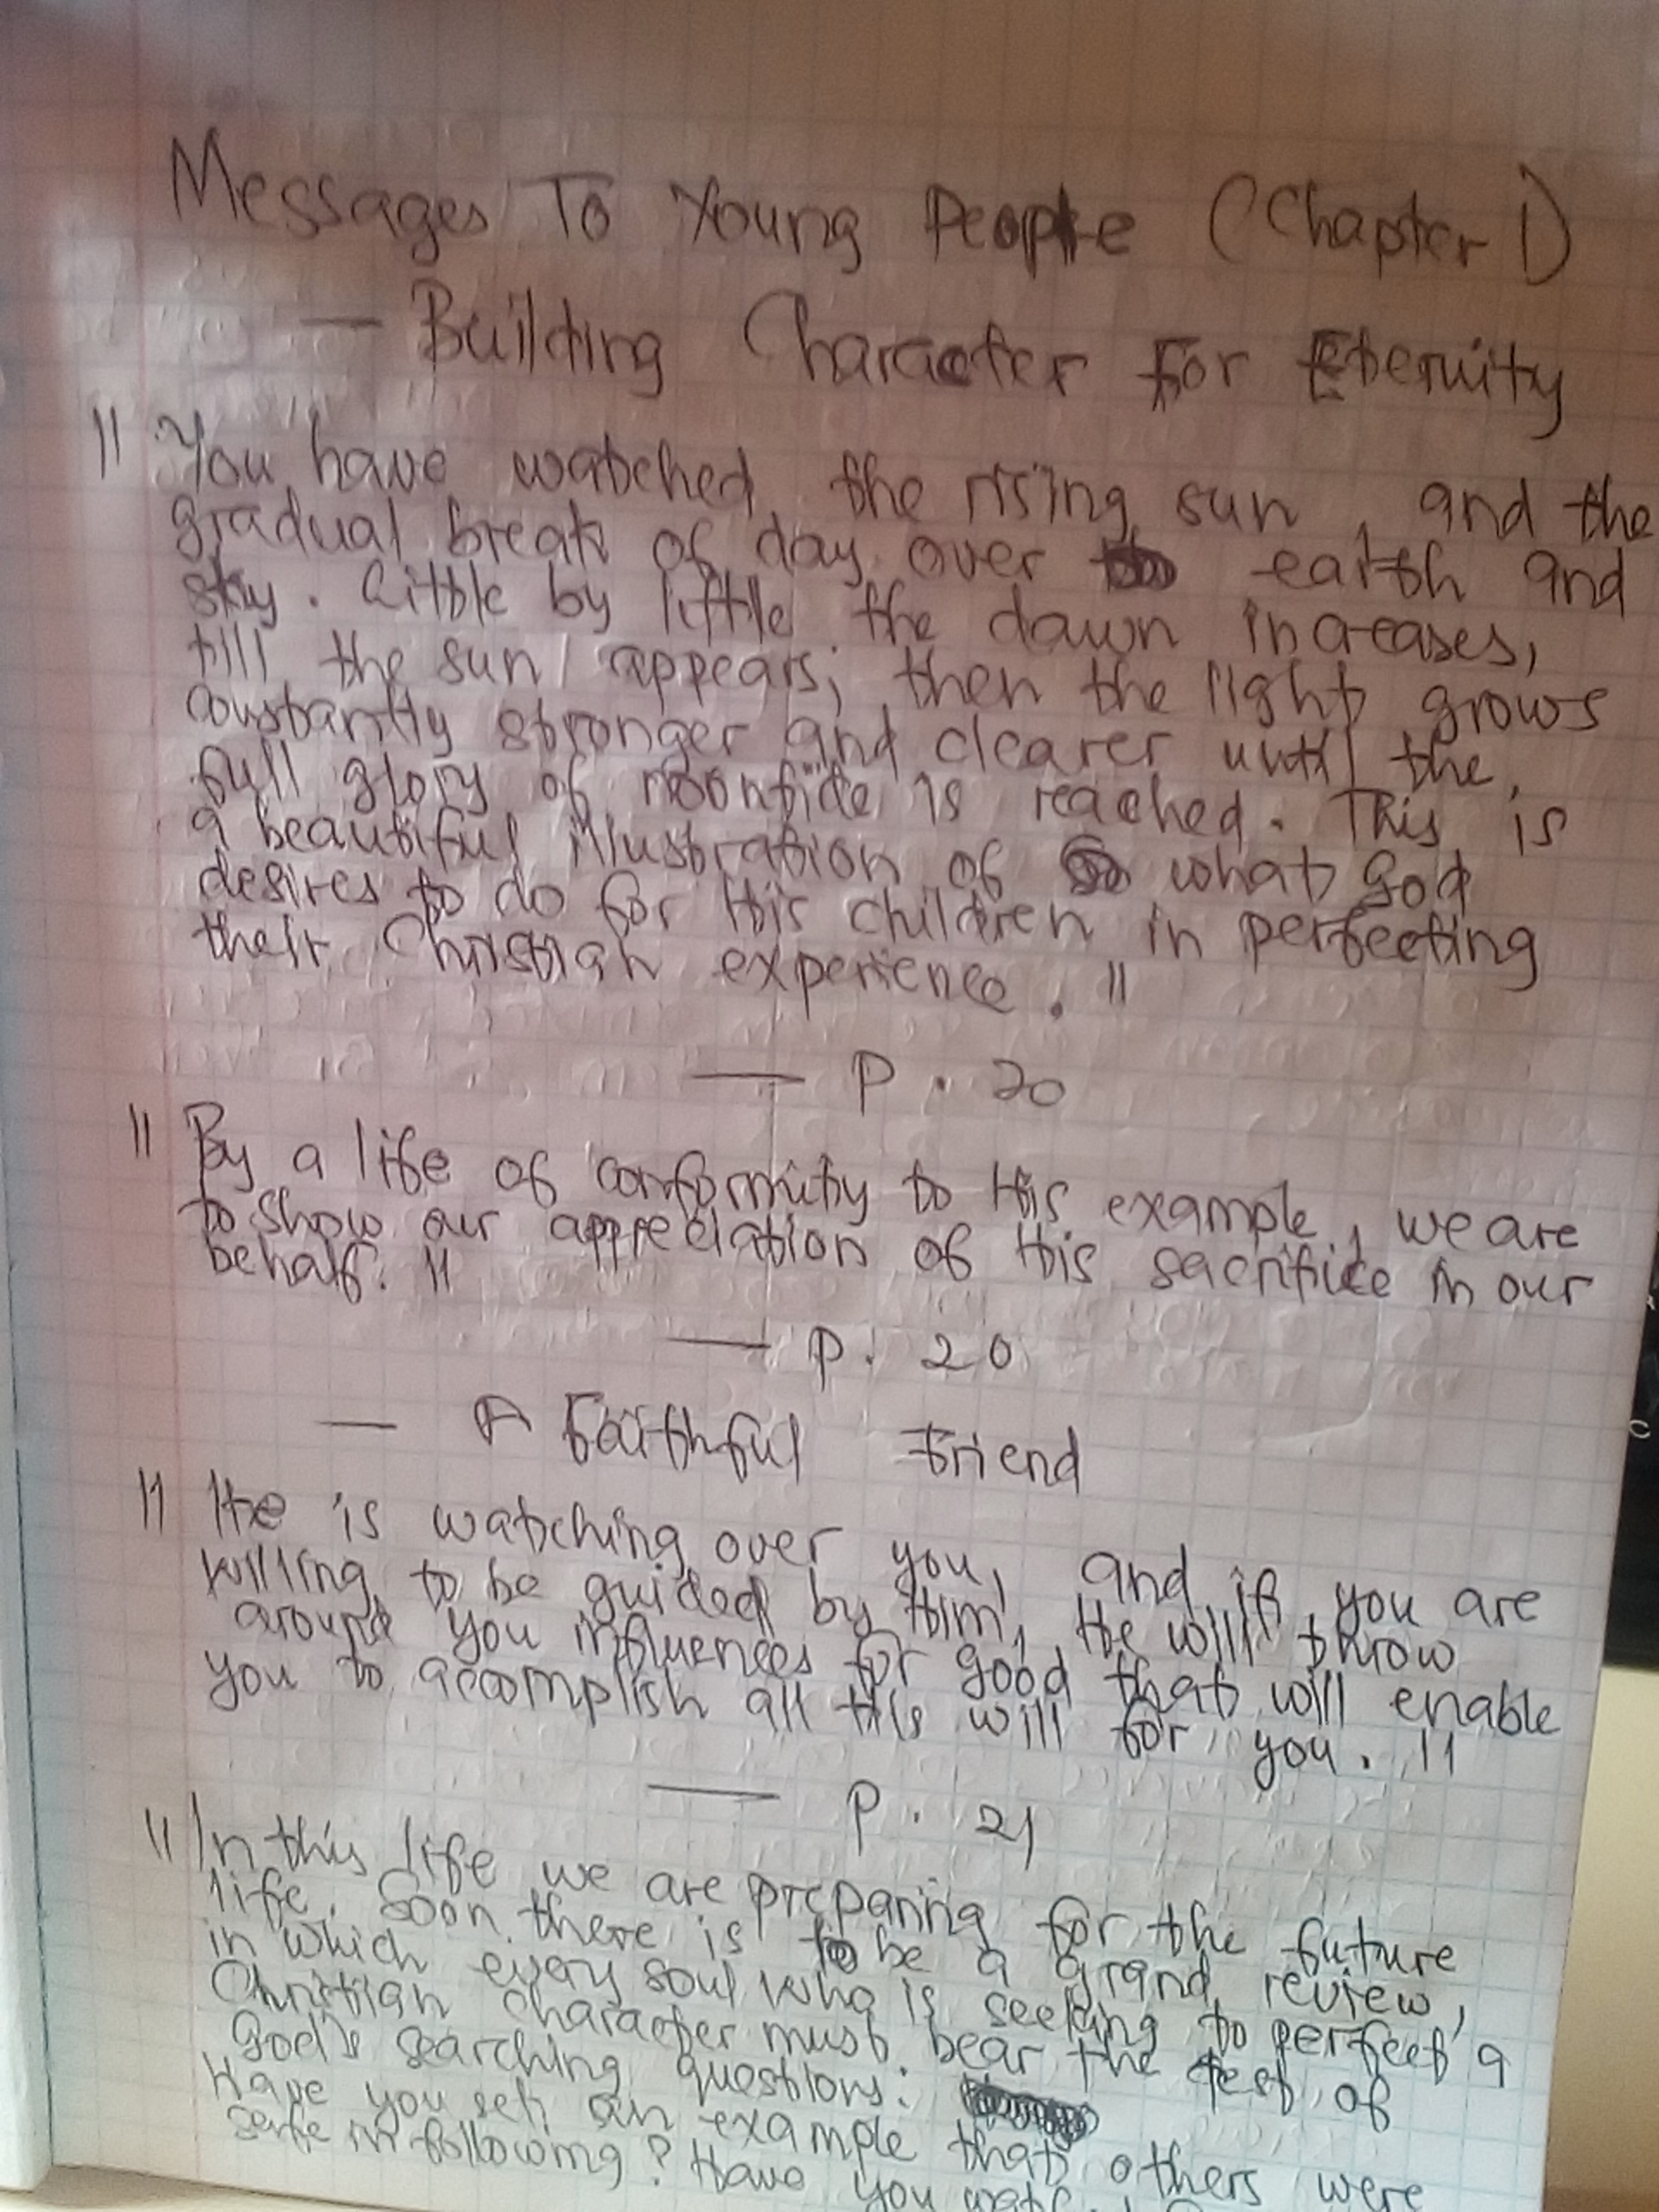 Messages To Young People (Chapter 1)
— Building Character For Eternity
" You have watched the rising sun, and the
gradual break of day over earth and
sky. Little by little the dawn increases,
till the sun appears; then the light grows
constantly stronger and clearer until the
full glory of noontide is reached. This is
a beautiful illustration of what God
desires to do for His children in perfecting
their Christian experience. "
— P. 20
" By a life of conformity to His example, we are
to show our appreciation of His sacrifice in our
behalf. "
— P. 20
— A Faithful Friend
" He is watching over you, and if you are
willing to be guided by Him, He will throw
around you influences for good that will enable
you to accomplish all His will for you. "
— P. 21
" In this life we are preparing for the future
life. Soon there is to be a grand review,
in which every soul who is seeking to perfect a
Christian character must bear the test of
God's searching questions:
Have you set an example that others were
safe in following? Have you